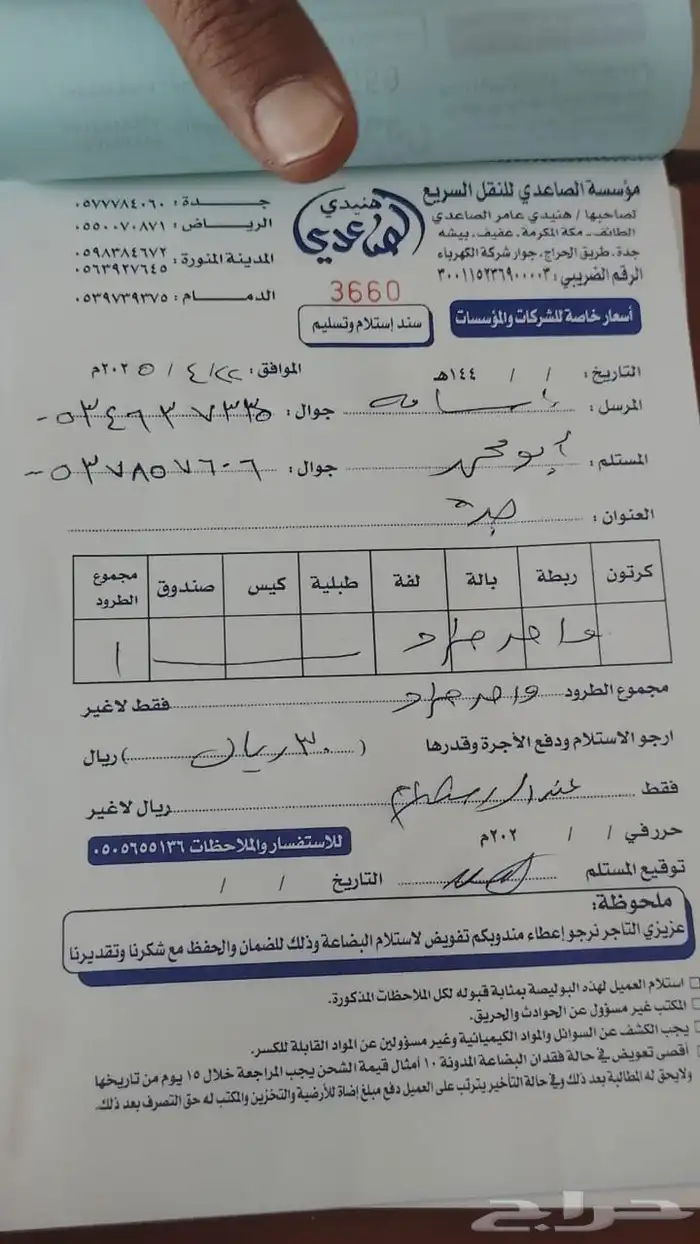 مؤسسة الصاعدي للنقل السريع
لصاحبها / هنيدي عامر الصاعدي
الطائف . مكة المكرمة . عفيف . بيشه
جدة . طريق الحراج . جوار شركة الكهرباء
الرقم الضريبي : ٣٠٠١١٥٢٣٦٩٠٠٠٠٣
أسعار خاصة للشركات والمؤسسات
هنيدي
الصاعدي
3660
سند إستلام وتسليم
جـــدة : ٠٥٧٧٧٨٤٠٦٠
الرياض : ٠٥٥٠٠٧٠٨٧١
المدينة المنورة : ٠٥٩٨٣٨٤٦٧٢
٠٥٦٣٩٢٧٦٤٥
الدمام : ٠٥٣٩٧٣٩٣٧٥
التاريخ : / / ١٤٤هـ الموافق : ٢٢ / ٤ / ٢٠٢٥م
المرسل : أسامه جوال : ٠٥٣٤٦٣٧٣٣٥
المستلم : أبو محمد جوال : ٠٥٣٧٨٥٧٦٠٦
العنوان : جدة
كرتون ربطة بالة لفة طبلية كيس صندوق مجموع الطرود
واحد ١
مجموع الطرود واحد فقط لاغير
ارجو الاستلام ودفع الأجرة وقدرها ( ٣٠ ريال ) ريال
فقط عند الاستلام ريال لاغير
حرر في / / ٢٠٢م
للاستفسار والملاحظات ٠٥٠٥٦٥٥١٣٦
توقيع المستلم التاريخ / /
ملحوظة:
عزيزي التاجر نرجو إعطاء مندوبكم تفويض لاستلام البضاعة وذلك للضمان والحفظ مع شكرنا وتقديرنا
استلام العميل لهذه البوليصة بمثابة قبوله لكل الملاحظات المذكورة.
المكتب غير مسؤول عن الحوادث والحريق.
يجب الكشف عن السوائل والمواد الكيميائية وغير مسؤولين عن المواد القابلة للكسر.
أقصى تعويض في حالة فقدان البضاعة المدونة ١٠ أمثال قيمة الشحن يجب المراجعة خلال ١٥ يوم من تاريخها
ولايحق له المطالبة بعد ذلك وفي حالة التأخير يترتب على العميل دفع مبلغ إضافة للأرضية والتخزين والمكتب له حق التصرف بعد ذلك.
حراج